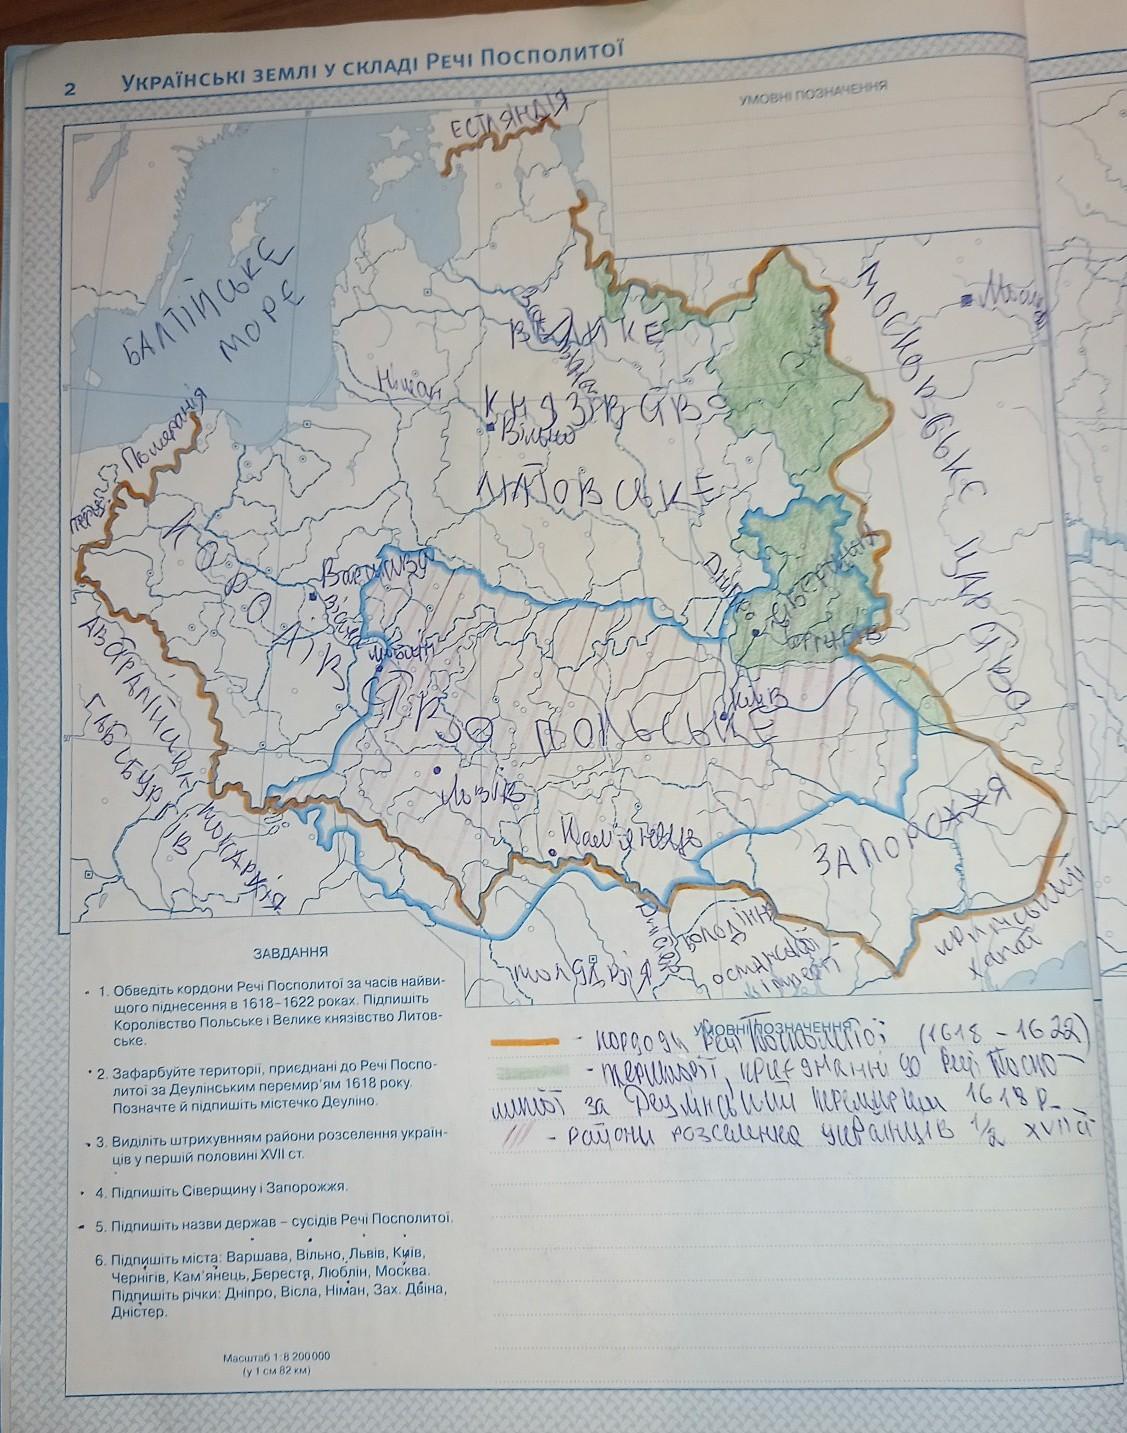 2 УКРАЇНСЬКІ ЗЕМЛІ У СКЛАДІ РЕЧІ ПОСПОЛИТОЇ
УМОВНІ ПОЗНАЧЕННЯ
ЕСТЛЯНДІЯ
БАЛТІЙСЬКЕ
МОРЕ
МОСКОВСЬКЕ ЦАРСТВО
ВЕЛИКЕ
КНЯЗІВСТВО
ЛИТОВСЬКЕ
Німан
Вільно
Померанія
КОРОЛІВ
СТВО ПОЛЬСЬКЕ
Варшава
Вісла
Люблін
Київ
Львів
Кам'янець
ЗАПОРОЖЖЯ
АВСТРІЙСЬКИХ
ГАБСБУРГІВ
МОНАРХІЯ
МОЛДАВІЯ
Дністер
ВОЛОДІННЯ
ОСМАНСЬКОЇ
ІМПЕРІЇ
КРИМСЬКИЙ
Ханат
ЗАВДАННЯ
1. Обведіть кордони Речі Посполитої за часів найви-
щого піднесення в 1618–1622 роках. Підпишіть
Королівство Польське і Велике князівство Литов-
ське.
2. Зафарбуйте території, приєднані до Речі Поспо-
литої за Деулінським перемир'ям 1618 року.
Позначте й підпишіть містечко Деуліно.
3. Виділіть штрихувнням райони розселення україн-
ців у першій половині XVII ст.
4. Підпишіть Сіверщину і Запорожжя.
5. Підпишіть назви держав – сусідів Речі Посполитої.
6. Підпишіть міста: Варшава, Вільно, Львів, Київ,
Чернігів, Кам'янець, Берестя, Люблін, Москва.
Підпишіть річки: Дніпро, Вісла, Німан, Зах. Двіна,
Дністер.
Масштаб 1:8 200 000
(у 1 см 82 км)
УМОВНІ ПОЗНАЧЕННЯ
- кордони Речі Посполитої (1618 - 1622)
- території, приєднанні до Речі Поспо-
литої за Деулінським перемирям 1618 р.
- райони розселення українців 1/2 XVII ст